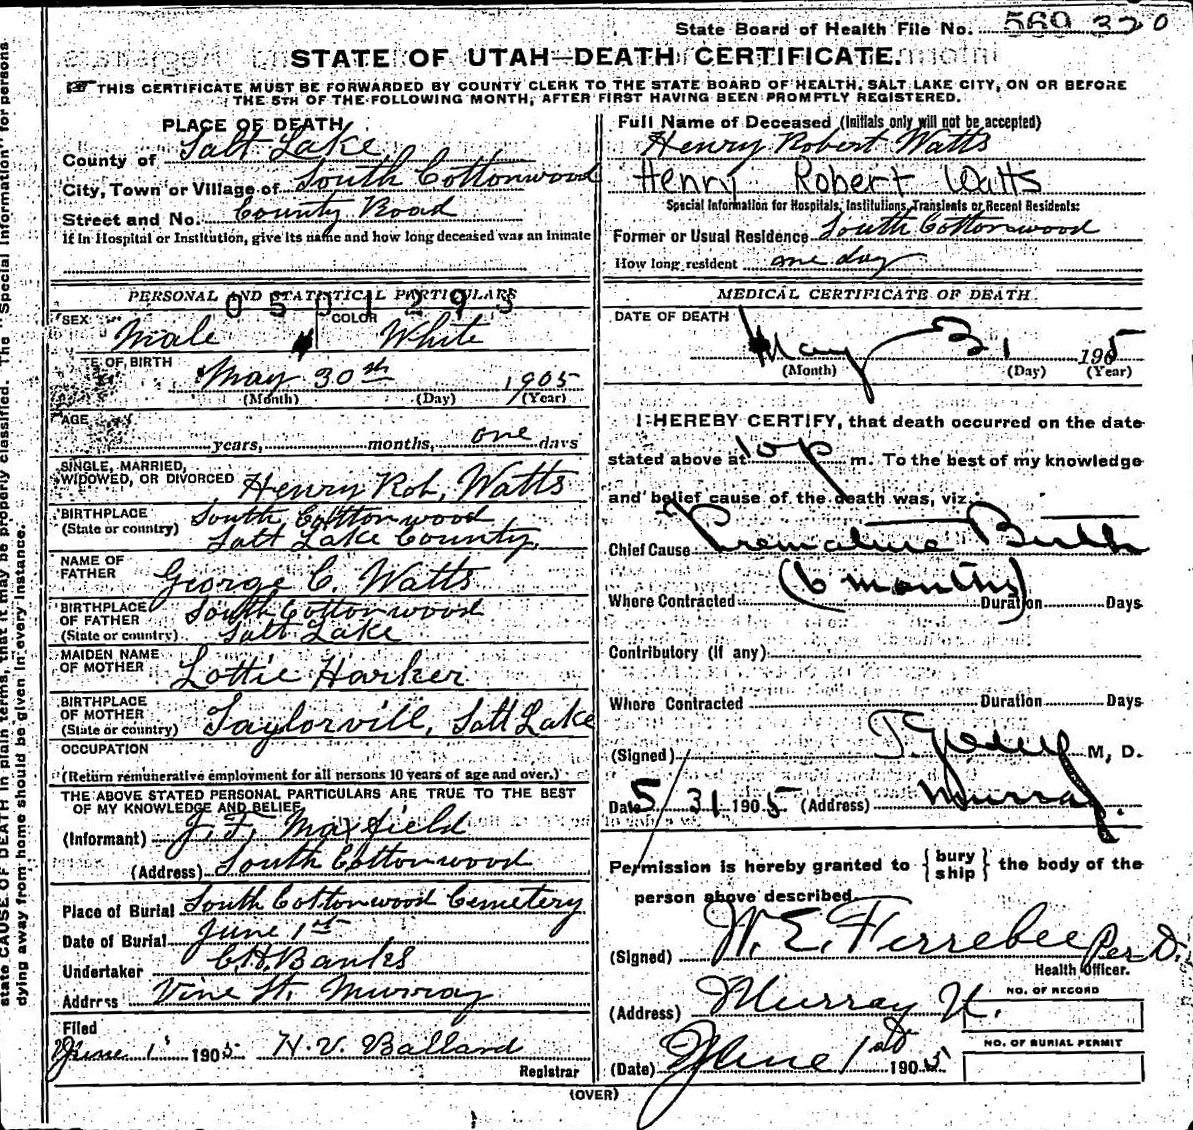 State Board of Health File No. 569 320
STATE OF UTAH—DEATH CERTIFICATE.
THIS CERTIFICATE MUST BE FORWARDED BY COUNTY CLERK TO THE STATE BOARD OF HEALTH, SALT LAKE CITY, ON OR BEFORE
THE 5TH OF THE FOLLOWING MONTH, AFTER FIRST HAVING BEEN PROMPTLY REGISTERED.
PLACE OF DEATH
County of Salt Lake
City, Town or Village of South Cottonwood
Street and No. County Road
If in Hospital or Institution, give its name and how long deceased was an inmate
PERSONAL AND STATISTICAL PARTICULARS
0501293
SEX Male COLOR White
TE OF BIRTH
May 30th 1905
(Month) (Day) (Year)
AGE
years, months, one days
SINGLE, MARRIED,
WIDOWED, OR DIVORCED Henry Rob. Watts
BIRTHPLACE South Cottonwood
(State or country) Salt Lake County.
NAME OF
FATHER George C. Watts
BIRTHPLACE
OF FATHER South Cottonwood
(State or country) Salt Lake
MAIDEN NAME
OF MOTHER Lottie Harker
BIRTHPLACE
OF MOTHER
(State or country) Taylorvill, Salt Lake
OCCUPATION
(Return remunerative employment for all persons 10 years of age and over.)
THE ABOVE STATED PERSONAL PARTICULARS ARE TRUE TO THE BEST
OF MY KNOWLEDGE AND BELIEF,
(Informant) J. F. Maxfield
(Address) South Cottonwood
Place of Burial South Cottonwood Cemetery
Date of Burial June 1st
Undertaker C.H. Banks
Address Vine St. Murray
Filed
June 1 1905 H. V. Balland
Registrar
Full Name of Deceased (Initials only will not be accepted)
Henry Robert Watts
Henry Robert Watts
Special Information for Hospitals, Institutions, Transients or Recent Residents:
Former or Usual Residence South Cottonwood
How long resident one day
MEDICAL CERTIFICATE OF DEATH.
DATE OF DEATH
May 31 1905
(Month) (Day) (Year)
I HEREBY CERTIFY, that death occurred on the date
stated above at 10 p m. To the best of my knowledge
and belief cause of the death was, viz.
Chief Cause Premature Birth
(6 months)
Where Contracted Duration Days
Contributory (If any)
Where Contracted Duration Days
(Signed) M. D.
Date 5/31 1905 (Address) Murray.
Permission is hereby granted to {bury ship} the body of the
person above described.
(Signed) W. E. Ferrebee Per D.
Health Officer.
(Address) Murray U.
NO. OF RECORD
NO. OF BURIAL PERMIT
(Date) June 1st 1905
(OVER)
state CAUSE OF DEATH in plain terms, that it may be properly classified. The "Special Information" for persons
dying away from home should be given in every instance.